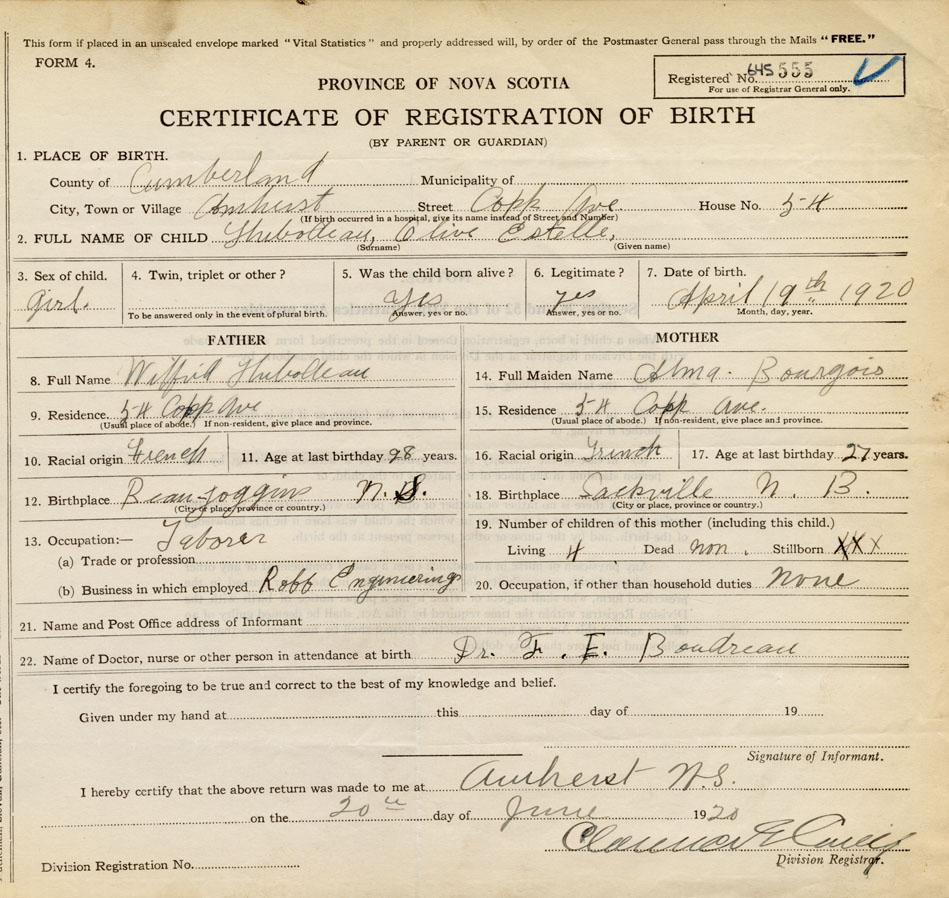 This form if placed in an unsealed envelope marked "Vital Statistics" and properly addressed will, by order of the Postmaster General pass through the Mails "FREE."
FORM 4.
Registered No. 645 555
For use of Registrar General only.
PROVINCE OF NOVA SCOTIA
CERTIFICATE OF REGISTRATION OF BIRTH
(BY PARENT OR GUARDIAN)
1. PLACE OF BIRTH.
County of Cumberland Municipality of
City, Town or Village Amherst Street Copp Ave House No. 54
(If birth occurred in a hospital, give its name instead of Street and Number)
2. FULL NAME OF CHILD Thibolteau, Olive Estelle,
(Surname) (Given name)
3. Sex of child. 4. Twin, triplet or other? 5. Was the child born alive? 6. Legitimate? 7. Date of birth.
Girl. yes yes April 19th 1920
To be answered only in the event of plural birth. Answer, yes or no. Answer, yes or no. Month, day, year.
FATHER MOTHER
8. Full Name Wilfrid Thibolteau 14. Full Maiden Name Alma Bourgois
9. Residence. 54 Copp Ave 15. Residence 54 Copp Ave.
(Usual place of abode.) If non-resident, give place and province. (Usual place of abode.) If non-resident, give place and province.
10. Racial origin French 11. Age at last birthday 28 years. 16. Racial origin French 17. Age at last birthday 27 years.
12. Birthplace Beau-Joggins N. S. 18. Birthplace Sackville N. B.
(City or place, province or country.) (City or place, province or country.)
13. Occupation:— Laborer 19. Number of children of this mother (including this child.)
(a) Trade or profession Living 4 Dead non. Stillborn XXX
(b) Business in which employed Robb Engineerings 20. Occupation, if other than household duties None
21. Name and Post Office address of Informant
22. Name of Doctor, nurse or other person in attendance at birth Dr. F. E. Boudreau
I certify the foregoing to be true and correct to the best of my knowledge and belief.
Given under my hand at this day of 19
Signature of Informant.
I hereby certify that the above return was made to me at Amherst N.S.
on the 20th day of June 1920
Division Registrar.
Division Registration No.